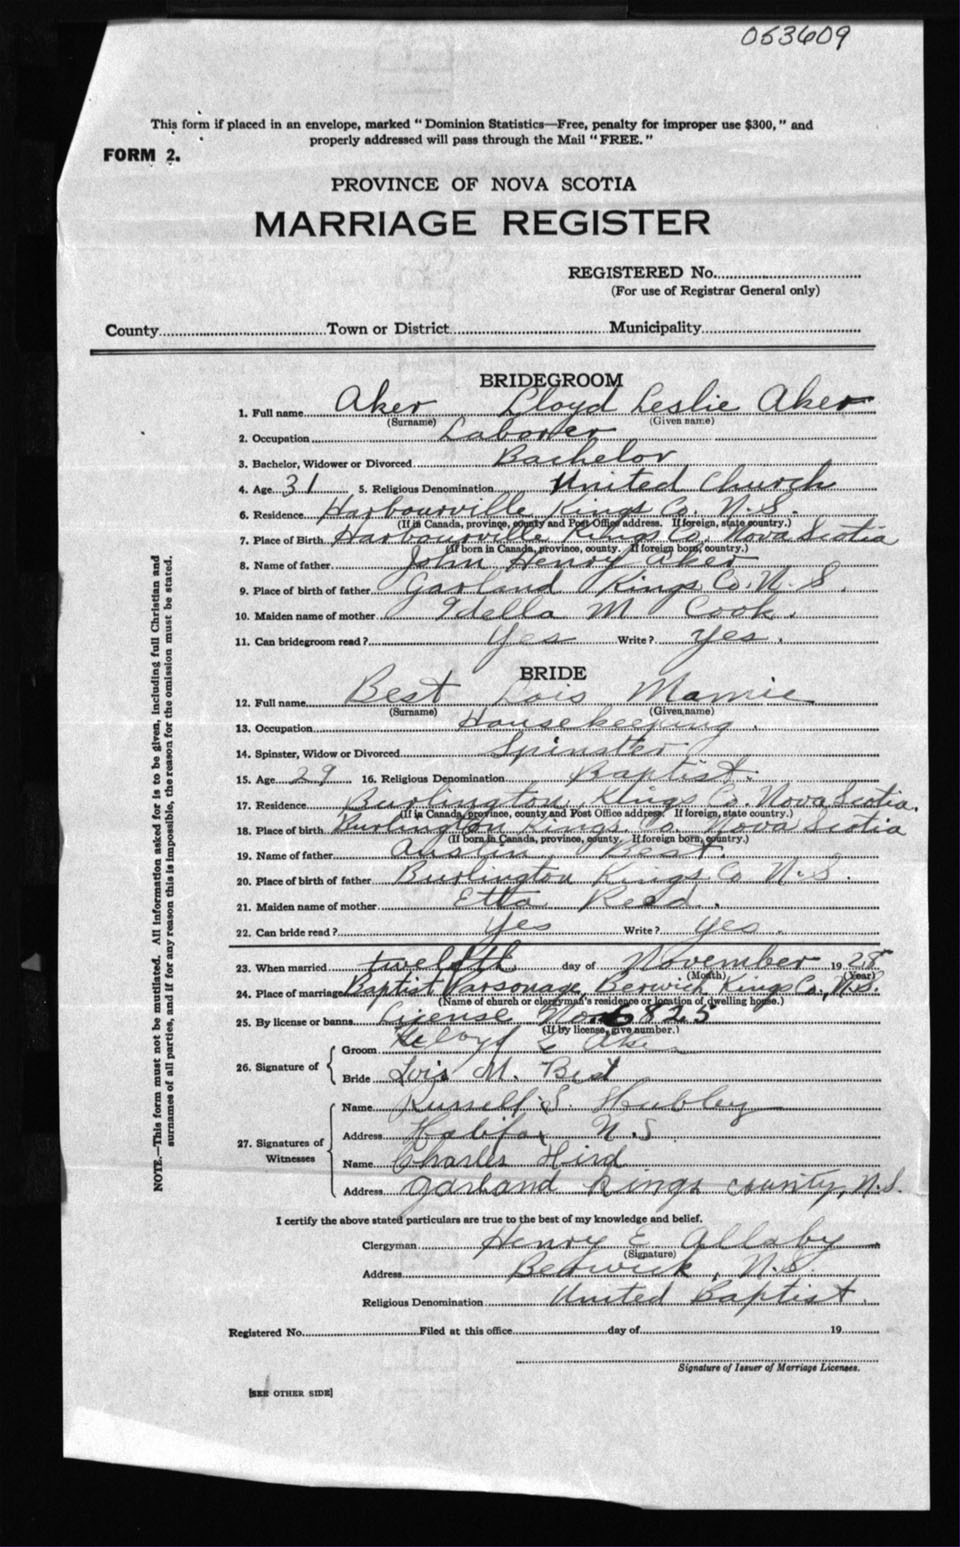 053609
This form if placed in an envelope, marked "Dominion Statistics—Free, penalty for improper use $300," and
properly addressed will pass through the Mail "FREE."
FORM 2.
PROVINCE OF NOVA SCOTIA
MARRIAGE REGISTER
REGISTERED No.
(For use of Registrar General only)
County Town or District Municipality
BRIDEGROOM
1. Full name Aker Lloyd Leslie Aker
(Surname) (Given name)
2. Occupation Laborer
3. Bachelor, Widower or Divorced Bachelor
4. Age 31 5. Religious Denomination United Church
6. Residence Harbourville Kings Co. N.S.
(If in Canada, province, county and Post Office address. If foreign, state country.)
7. Place of Birth Harbourville Kings Co. Nova Scotia
(If born in Canada, province, county. If foreign born, country.)
8. Name of father John Henry Aker
9. Place of birth of father Garland Kings Co. N. S.
10. Maiden name of mother Idella M Cook.
11. Can bridegroom read? Yes Write? Yes.
BRIDE
12. Full name Best Lois Mamie
(Surname) (Given name)
13. Occupation Housekeeping.
14. Spinster, Widow or Divorced Spinster
15. Age 29 16. Religious Denomination Baptist.
17. Residence Burlington, Kings Co. Nova Scotia.
(If in Canada, province, county and Post Office address. If foreign, state country.)
18. Place of birth Burlington Kings Co. Nova Scotia
(If born in Canada, province, county. If foreign born, country.)
19. Name of father Austin Best.
20. Place of birth of father Burlington Kings Co N.S.
21. Maiden name of mother Etta Read.
22. Can bride read? Yes Write? Yes.
23. When married twelfth day of November 1928
(Month) (Year)
24. Place of marriage Baptist Parsonage, Berwick Kings Co., N.S.
(Name of church or clergyman's residence or location of dwelling house.)
25. By license or banns License No. 6825
(If by license, give number.)
26. Signature of
Groom Lloyd L Aker
Bride Lois M. Best
27. Signatures of Witnesses
Name Russell S. Hubley
Address Halifax N.S
Name Charles Hird
Address Garland Kings County, N.S.
I certify the above stated particulars are true to the best of my knowledge and belief.
Clergyman Henry E. Allaby
(Signature)
Address Berwick, N.S.
Religious Denomination United Baptist.
Registered No. Filed at this office day of 19
Signature of Issuer of Marriage Licenses.
[SEE OTHER SIDE]
NOTE.—This form must not be mutilated. All information asked for is to be given, including full Christian and
surnames of all parties, and if for any reason this is impossible, the reason for the omission must be stated.